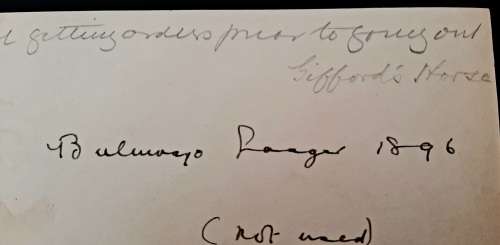 getting orders prior to going out
Gifford's Horse
Bulwayo Laager 1896
(not used)